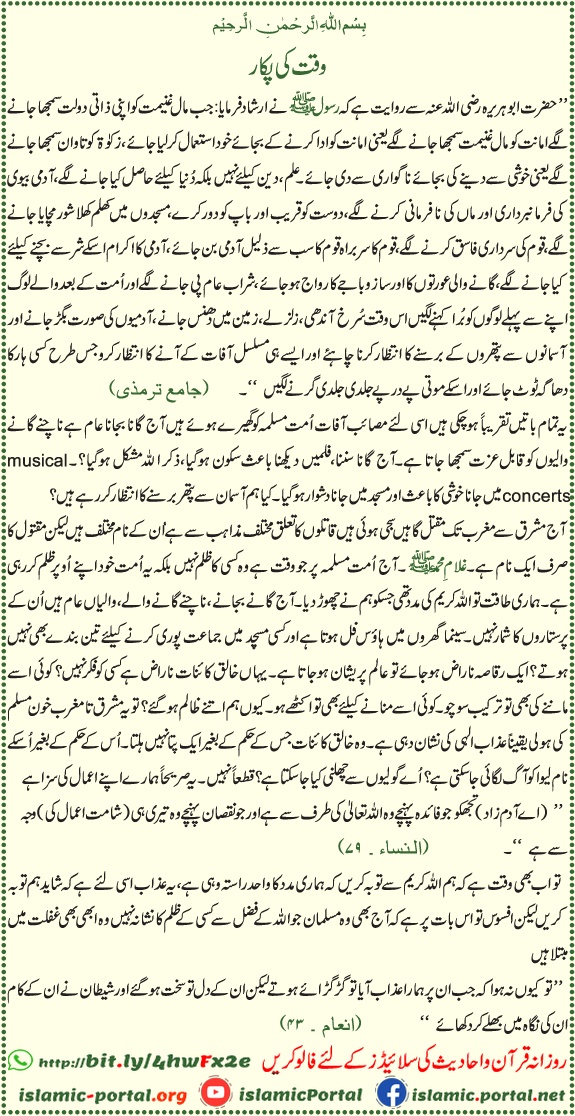 بِسْمِ اللهِ الرَّحْمٰنِ الرَّحِيْمِ
وقت کی پکار
’’حضرت ابو ہریرہ رضی اللہ عنہ سے روایت ہے کہ رسول ﷺ نے ارشاد فرمایا: جب مال غنیمت کو اپنی ذاتی دولت سمجھا جانے
لگے امانت کو مال غنیمت سمجھا جانے لگے یعنی امانت کو ادا کرنے کے بجائے خود استعمال کر لیا جائے، زکوۃ کو تاوان سمجھا جانے
لگے یعنی خوشی سے دینے کی بجائے ناگواری سے دی جائے۔ علم، دین کیلئے نہیں بلکہ دُنیا کیلئے حاصل کیا جانے لگے، آدمی بیوی
کی فرمانبرداری اور ماں کی نافرمانی کرنے لگے، دوست کو قریب اور باپ کو دور کرے، مسجدوں میں کھلم کھلا شور مچایا جانے
لگے، قوم کی سرداری فاسق کرنے لگے، قوم کا سربراہ قوم کا سب سے ذلیل آدمی بن جائے، آدمی کا اکرام اسکے شر سے بچنے کیلئے
کیا جانے لگے، گانے والی عورتوں کا اور ساز و باجے کا رواج ہو جائے، شراب عام پی جانے لگے اور اُمت کے بعد والے لوگ
اپنے سے پہلے لوگوں کو بُرا کہنے لگیں اس وقت سُرخ آندھی، زلزلے، زمین میں دھنس جانے، آدمیوں کی صورت بگڑ جانے اور
آسمانوں سے پتھروں کے برسنے کا انتظار کرنا چاہئے اور ایسے ہی مسلسل آفات کے آنے کا انتظار کرو جس طرح کسی ہار کا
دھاگہ ٹوٹ جائے اور اسکے موتی پے در پے جلدی جلدی گرنے لگیں ‘‘۔ (جامع ترمذی)
یہ تمام باتیں تقریباً ہو چکی ہیں اسی لئے مصائب آفات اُمت مسلمہ کو گھیرے ہوئے ہیں آج گانا بجانا عام ہے ناچنے گانے
والیوں کو قابل عزت سمجھا جاتا ہے۔ آج گانا سننا، فلمیں دیکھنا باعث سکون ہو گیا، ذکر اللہ مشکل ہو گیا؟۔ musical
concerts میں جانا خوشی کا باعث اور مسجد میں جانا دشوار ہو گیا۔ کیا ہم آسمان سے پتھر برسنے کا انتظار کر رہے ہیں؟
آج مشرق سے مغرب تک مقتل گاہیں سجی ہوئی ہیں قاتلوں کا تعلق مختلف مذاہب سے ہے اُن کے نام مختلف ہیں لیکن مقتول کا
صرف ایک نام ہے۔ غلامِ محمد ﷺ۔ آج اُمت مسلمہ پر جو وقت ہے وہ کسی کا ظلم نہیں بلکہ یہ اُمت خود اپنے اُوپر ظلم کر رہی
ہے۔ ہماری طاقت تو اللہ کریم کی مدد تھی جسکو ہم نے چھوڑ دیا۔ آج گانے بجانے، ناچنے گانے والے، والیاں عام ہیں اُن کے
پرستاروں کا شمار نہیں۔ سینما گھروں میں ہاؤس فل ہوتا ہے اور کسی مسجد میں جماعت پوری کرنے کیلئے تین بندے بھی نہیں
ہوتے؟ ایک رقاصہ ناراض ہو جائے تو عالم پریشان ہو جاتا ہے۔ یہاں خالق کائنات ناراض ہے کسی کو فکر نہیں؟ کوئی اسے
ماننے کی بھی تو ترکیب سوچو۔ کوئی اسے منانے کیلئے بھی تو اکٹھے ہو۔ کیوں ہم اتنے ظالم ہو گئے؟ تو یہ مشرق تا مغرب خون مسلم
کی ہولی یقیناً عذاب الہی کی نشان دہی ہے۔ وہ خالق کائنات جس کے حکم کے بغیر ایک پتا نہیں ہلتا۔ اُس کے حکم کے بغیر اُسکے
نام لیوا کو آگ لگائی جا سکتی ہے؟ اُے گولیوں سے چھلنی کیا جا سکتا ہے؟ قطعاً نہیں۔ یہ صریحاً ہمارے اپنے اعمال کی سزا ہے
’’ (اے آدم زاد) تجھکو جو فائدہ پہنچے وہ اللہ تعالیٰ کی طرف سے ہے اور جو نقصان پہنچے وہ تیری ہی (شامت اعمال کی) وجہ
سے ہے ‘‘۔ (النساء ۔ ۷۹)
تو اب بھی وقت ہے کہ ہم اللہ کریم سے توبہ کریں کہ ہماری مدد کا واحد راستہ وہی ہے، یہ عذاب اسی لئے ہے کہ شاید ہم توبہ
کریں لیکن افسوس تو اس بات پر ہے کہ آج بھی وہ مسلمان جو اللہ کے فضل سے کسی کے ظلم کا نشانہ نہیں وہ ابھی بھی غفلت میں
مبتلا ہیں
’’تو کیوں نہ ہوا کہ جب ان پر ہمارا عذاب آیا تو گڑ گڑائے ہوتے لیکن ان کے دل تو سخت ہو گئے اور شیطان نے ان کے کام
ان کی نگاہ میں بھلے کر دکھائے ‘‘ (انعام ۔ ۴۳)
روزانہ قرآن و احادیث کی سلائیڈز کے لئے فالو کریں http://bit.ly/4hwFx2e
islamic-portal.org islamicPortal islamic.portal.net